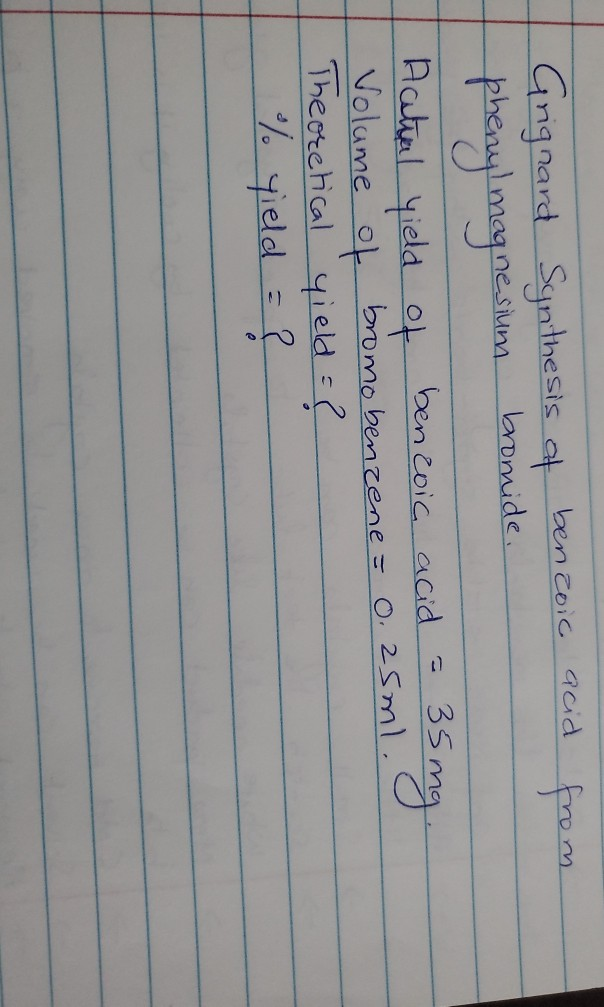 Grignard Synthesis of benzoic acid from
phenylmagnesium bromide.
Actual yield of benzoic acid = 35mg.
Volume of bromobenzene = 0.25ml.
Theoretical yield = ?
% yield = ?